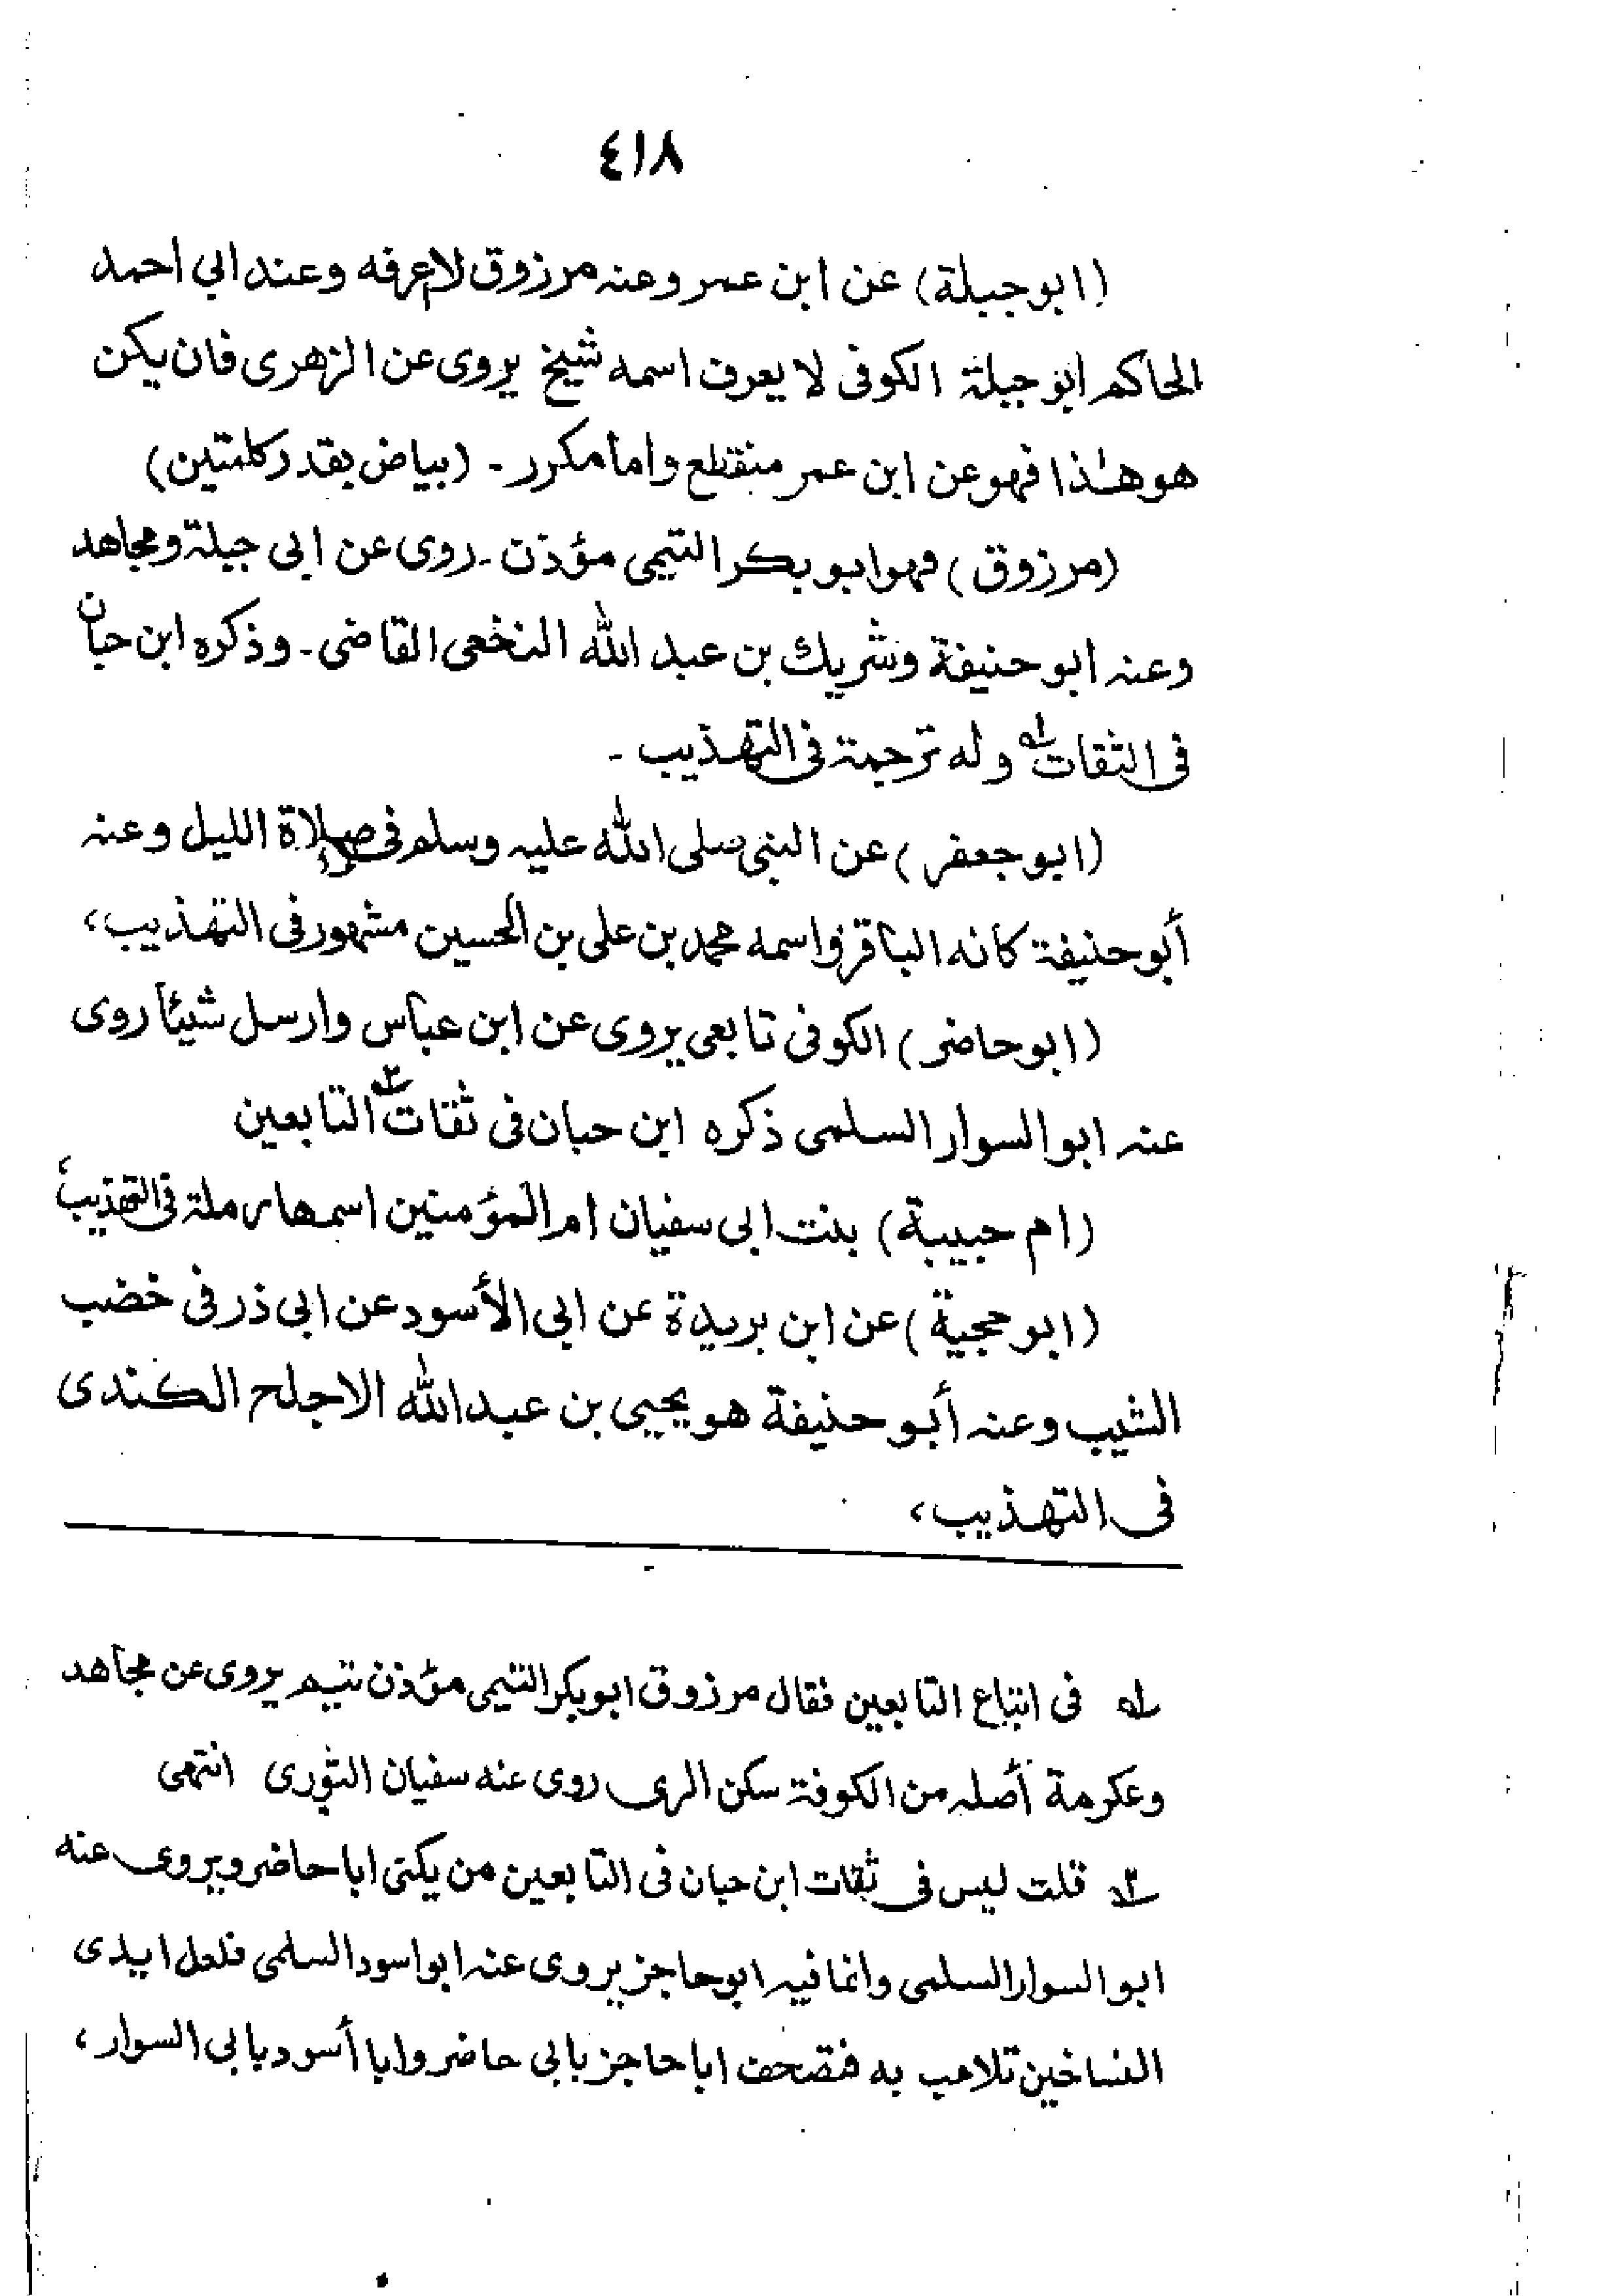 ٤١٨
(ابوجبلة) عن ابن عمر وعنه مرزوق لااعرفه وعند ابي احمد
الحاكم ابو جبلة الكوفى لا يعرف اسمه شيخ يروى عن الزهرى فان يكن
هو هذا فهو عن ابن عمر منقطع واما مكرر ـ (بياض بقدر كلمتين)
(مرزوق) فهو ابو بكر التيمى مؤذن ـ روى عن ابى جبلة ومجاهد
وعنه ابو حنيفة وشريك بن عبد الله النخعى القاضى ـ وذكره ابن حبان
فى الثقات له وله ترجمة فى التهذيب ـ
(ابو جعفر) عن النبى صلى الله عليه وسلم فى صلاة الليل وعنه
أبو حنيفة كانه الباقر واسمه محمد بن على بن الحسين مشهور فى التهذيب،
(ابو حاضر) الكوفى تابعى يروى عن ابن عباس وارسل شيئاً روى
عنه ابو السوار السلمى ذكره ابن حبان فى ثقات ٢ه التابعين
(ام حبيبة) بنت ابى سفيان ام المؤمنين اسمها رملة فى التهذيب،
(ابو حجية) عن ابن بريدة عن ابى الأسود عن ابى ذر فى خضب
الشيب وعنه أبو حنيفة هو يحيى بن عبد الله الاجلح الكندى
فى التهذيب،
له فى اتباع التابعين فقال مرزوق ابوبكر التيمى مؤذن تيم يروى عن مجاهد
وعكرمة أصله من الكوفة سكن الرى روى عنه سفيان الثورى انتهى
٢ه قلت ليس فى ثقات ابن حبان فى التابعين من يكنى ابا حاضر ويروى عنه
ابو السوار السلمى وانما فيه ابو حاجز يروى عنه ابو اسود السلمى فلعل ايدى
النساخين تلاعب به فتصحف ابا حاجز بابى حاضر وابا أسود بابى السوار،